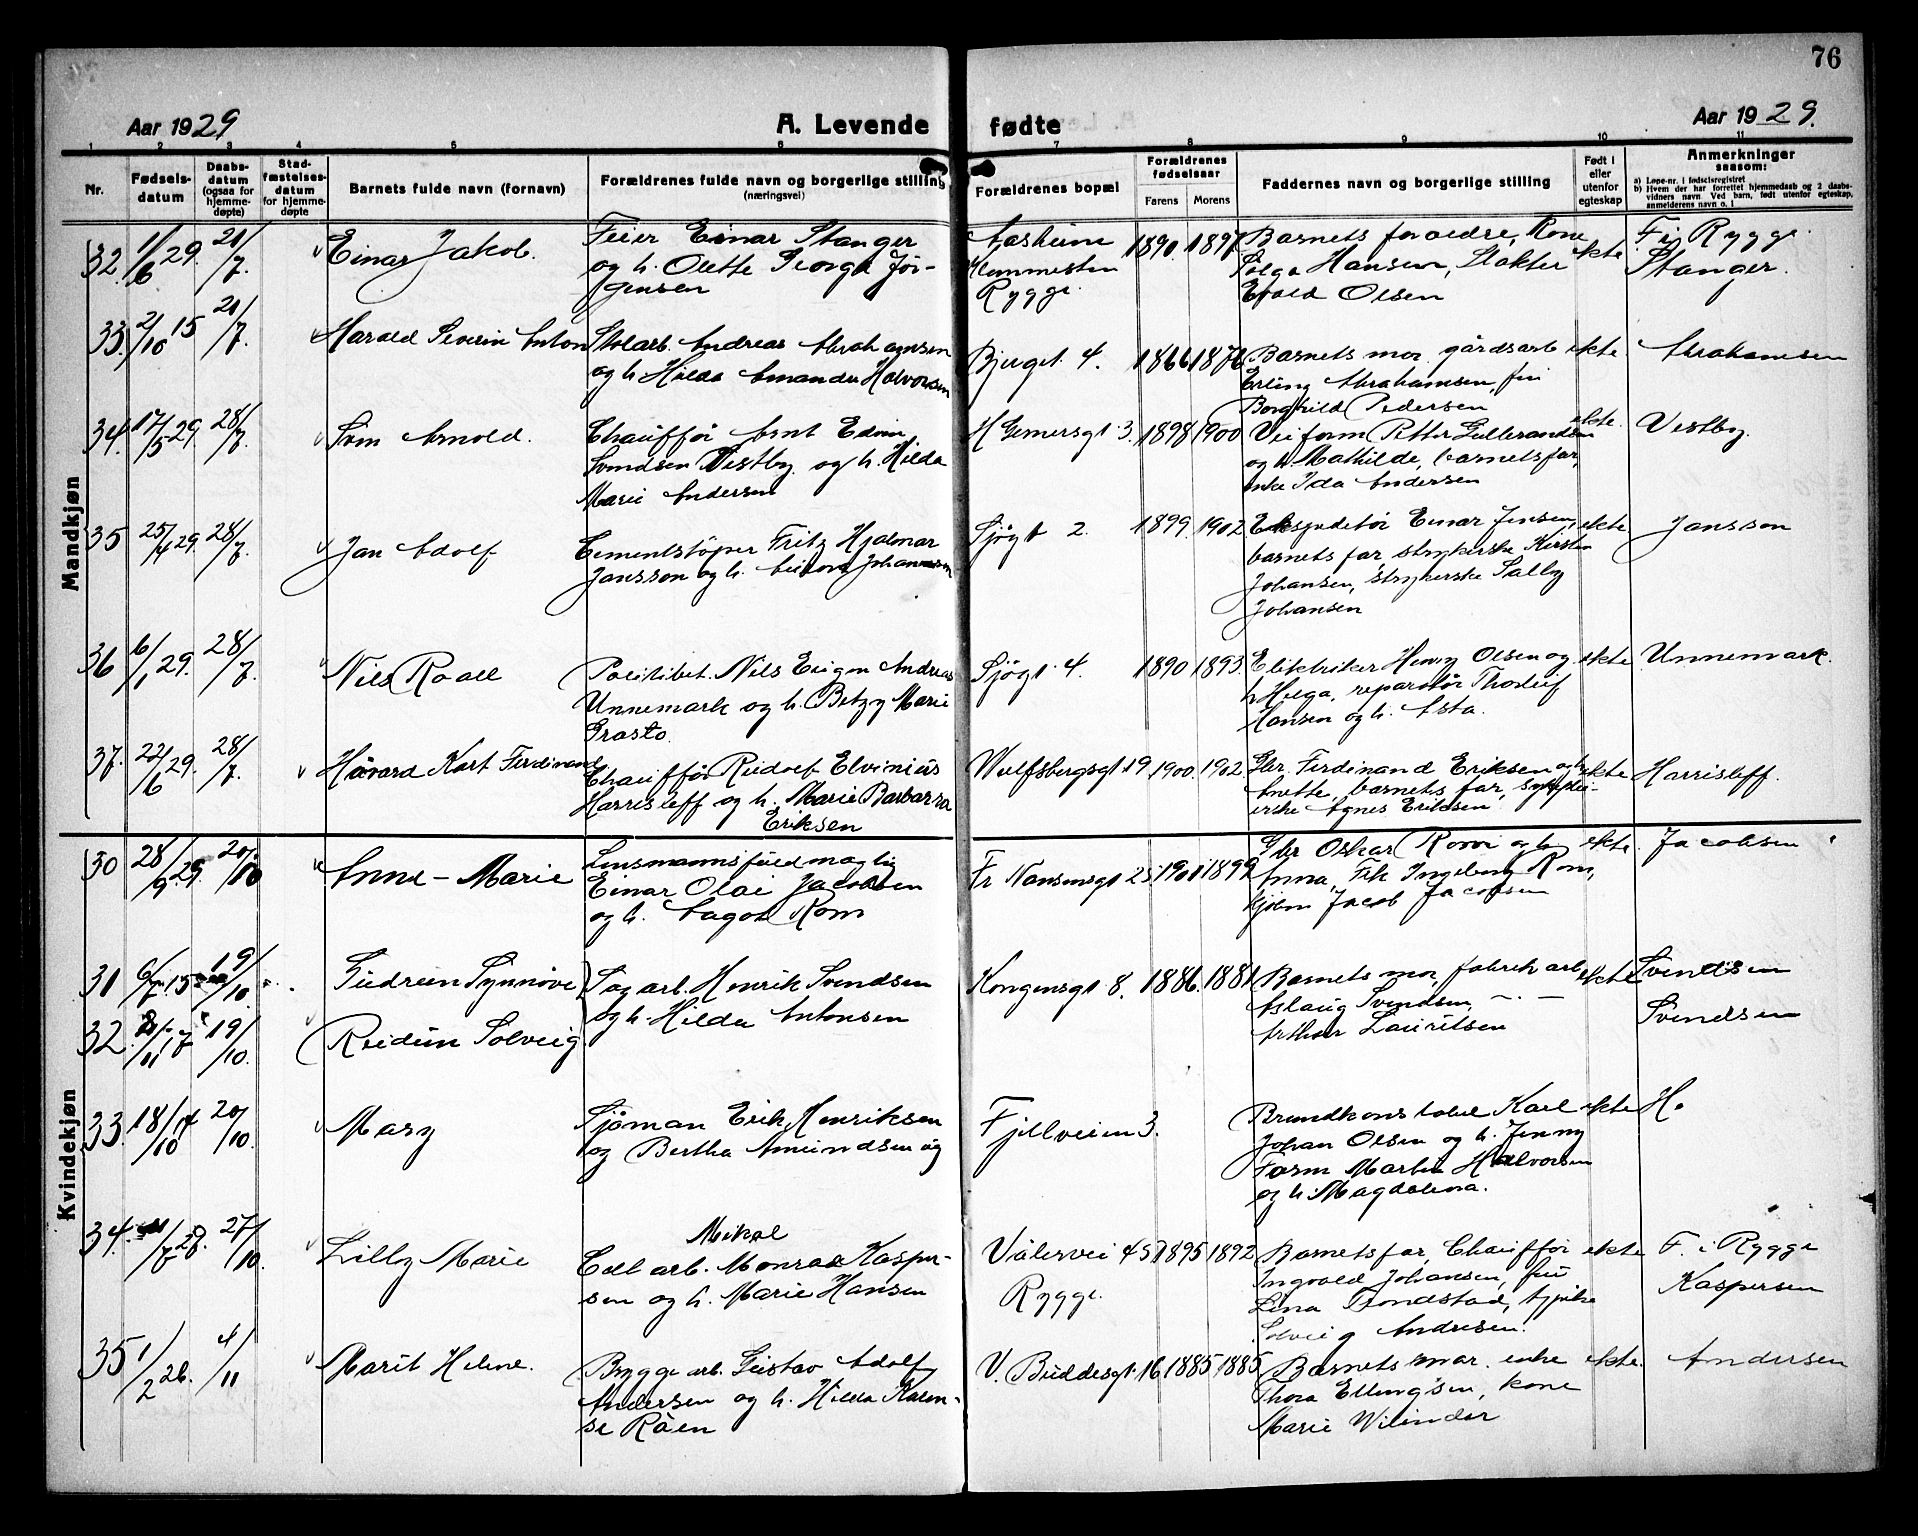 76
Aar 1929
A. Levende fødte
Aar 1929.
1 2 3 4 5 6 7 8 9 10 11
Nr.
Fødsels-
datum
Daabs-
datum
(ogsaa for
hjemme-
døpte)
Stad-
fæstelses-
datum
for hjemme-
døpte
Barnets fulde navn (fornavn)
Forældrenes fulde navn og borgerlige stilling
(næringsvei)
Forældrenes bopæl
Forældrenes
fødselsaar
Farens Morens
Faddernes navn og borgerlige stilling
Født i
eller
utenfor
egteskap
Anmerkninger
saasom:
a) Løpe-nr. i fødselsregistret
b) Hvem der har forrettet hjemmedaab og 2 daabs-
vidners navn. Ved barn, født utenfor egteskap,
anmelderens navn o. l
Mandkjøn
32. 1/6 29. 21/7. Einar Jakob.
Feier Einar Stanger
og h. Olette Georga Jør-
gensen
Rygge.
1890. 1897
Barnets foreldre, Kone
Solga Hansen, Slakter
Evald Olsen
ekte
F. i Rygge.
Stanger.
33. 2/10 15 21/7. Harald Severin Anton
Stolarb. Andreas Abrahamsen
og h. Hilda Amanda Halvorsen
Bjugt. 4. 1866 1876
Barnets mor. gårdsarb
Erling Abrahamsen, fru
Borghild Pedersen
ekte.
Abrahamsen
34. 17/5 29. 28/7. Svein Arnold.
Chauffør Arnt Edvin
Svendsen Vestby og h. Hilda
Marie Andersen
3. 1898 1900
Veiform Petter Gullerandsen
og h. Mathilde, barnets far,
enke Ida Andersen
ekte.
Vestby.
35 25/4 29. 28/7. Jan Adolf
Cementstøper Fritz Hjalmar
Jansson og h. Johannessen
Sjøgt 2. 1899. 1902
Ekspeditør Einar Jensen,
barnets far, strykerske Kirsten
Johansen, strykerske Sally
Johansen
ekte
Jansson
36 6/1 29. 28/7. Nils Roald
Politibet. Nils Erigon Andreas
Unnemark og h. Betzy Marie
Grasto.
Sjøgt. 4. 1890 1893.
Elektriker Henry Olsen og
h Helga, reparatør Thorleif
Hansen og h. Asta.
ekte
Unnemark.
37. 22/6 29. 28/7. Håvard Kart Ferdinand
Chauffør Rudolf Elvinius
Harrisleff og h. Marie Barbarra
Eriksen
Wulfsbergsgt 19 1900. 1902
Gbr. Ferdinand Eriksen og h
Anette, barnets far,
Agnes Eriksen.
ekte
Harrisleff.
Kvindekjøn
30 28/9 29. 20/10 Anne-Marie
Lensmannsfuldmægtig
Einar Olai Jacobsen
og h. Aagot Rom
Fr Nansensgt 25 1901 1899
Gbr Oskar Rom og h
Anna, Frk Ingeborg Rom,
Jacob Jacobsen
ekte.
Jacobsen
31 6/7 15 19/10. Gudrun Synnøve
Sagarb. Henrik Svendsen
og h. Hilda Antonsen
Kongensgt. 8. 1886. 1881
Barnets mor, fabrikarb
Aslaug Svendsen, – . –
Arthur Lauritsen
ekte
Svendsen
32. 19/10. Reidun Solveig
Svendsen
33. 18/10 20/10. Mary
Sjøman Erik Henriksen
og Bertha Amundsen
Fjellveien 3.
Brandkonstabel Karl
Johan Olsen og h. Jenny
Form Martin Halvorsen
og h. Magdalena.
ekte
H.
34. 11/7 28. 27/10. Lilly Marie
Mikal
Cell arb. Monrad Kasper-
sen og h. Marie Hansen
Vålervei 45 1895 1892
Rygge.
Barnets far, Chauffør
Ingvald Johansen, fru
Lina Trondstad, frøken
Solveig Andresen.
ekte
F. i Rygge
Kaspersen
35 1/2 28. 4/11 Marit Helene.
Bryggearb. Gustav Adolf
Andersen og h. Hilda Karen-
se Råen
V. Buddesgt. 16. 1885 1885
Barnets mor. enke
Thora Ellingsen, kone
Marie Wilinder
ekte.
Andersen